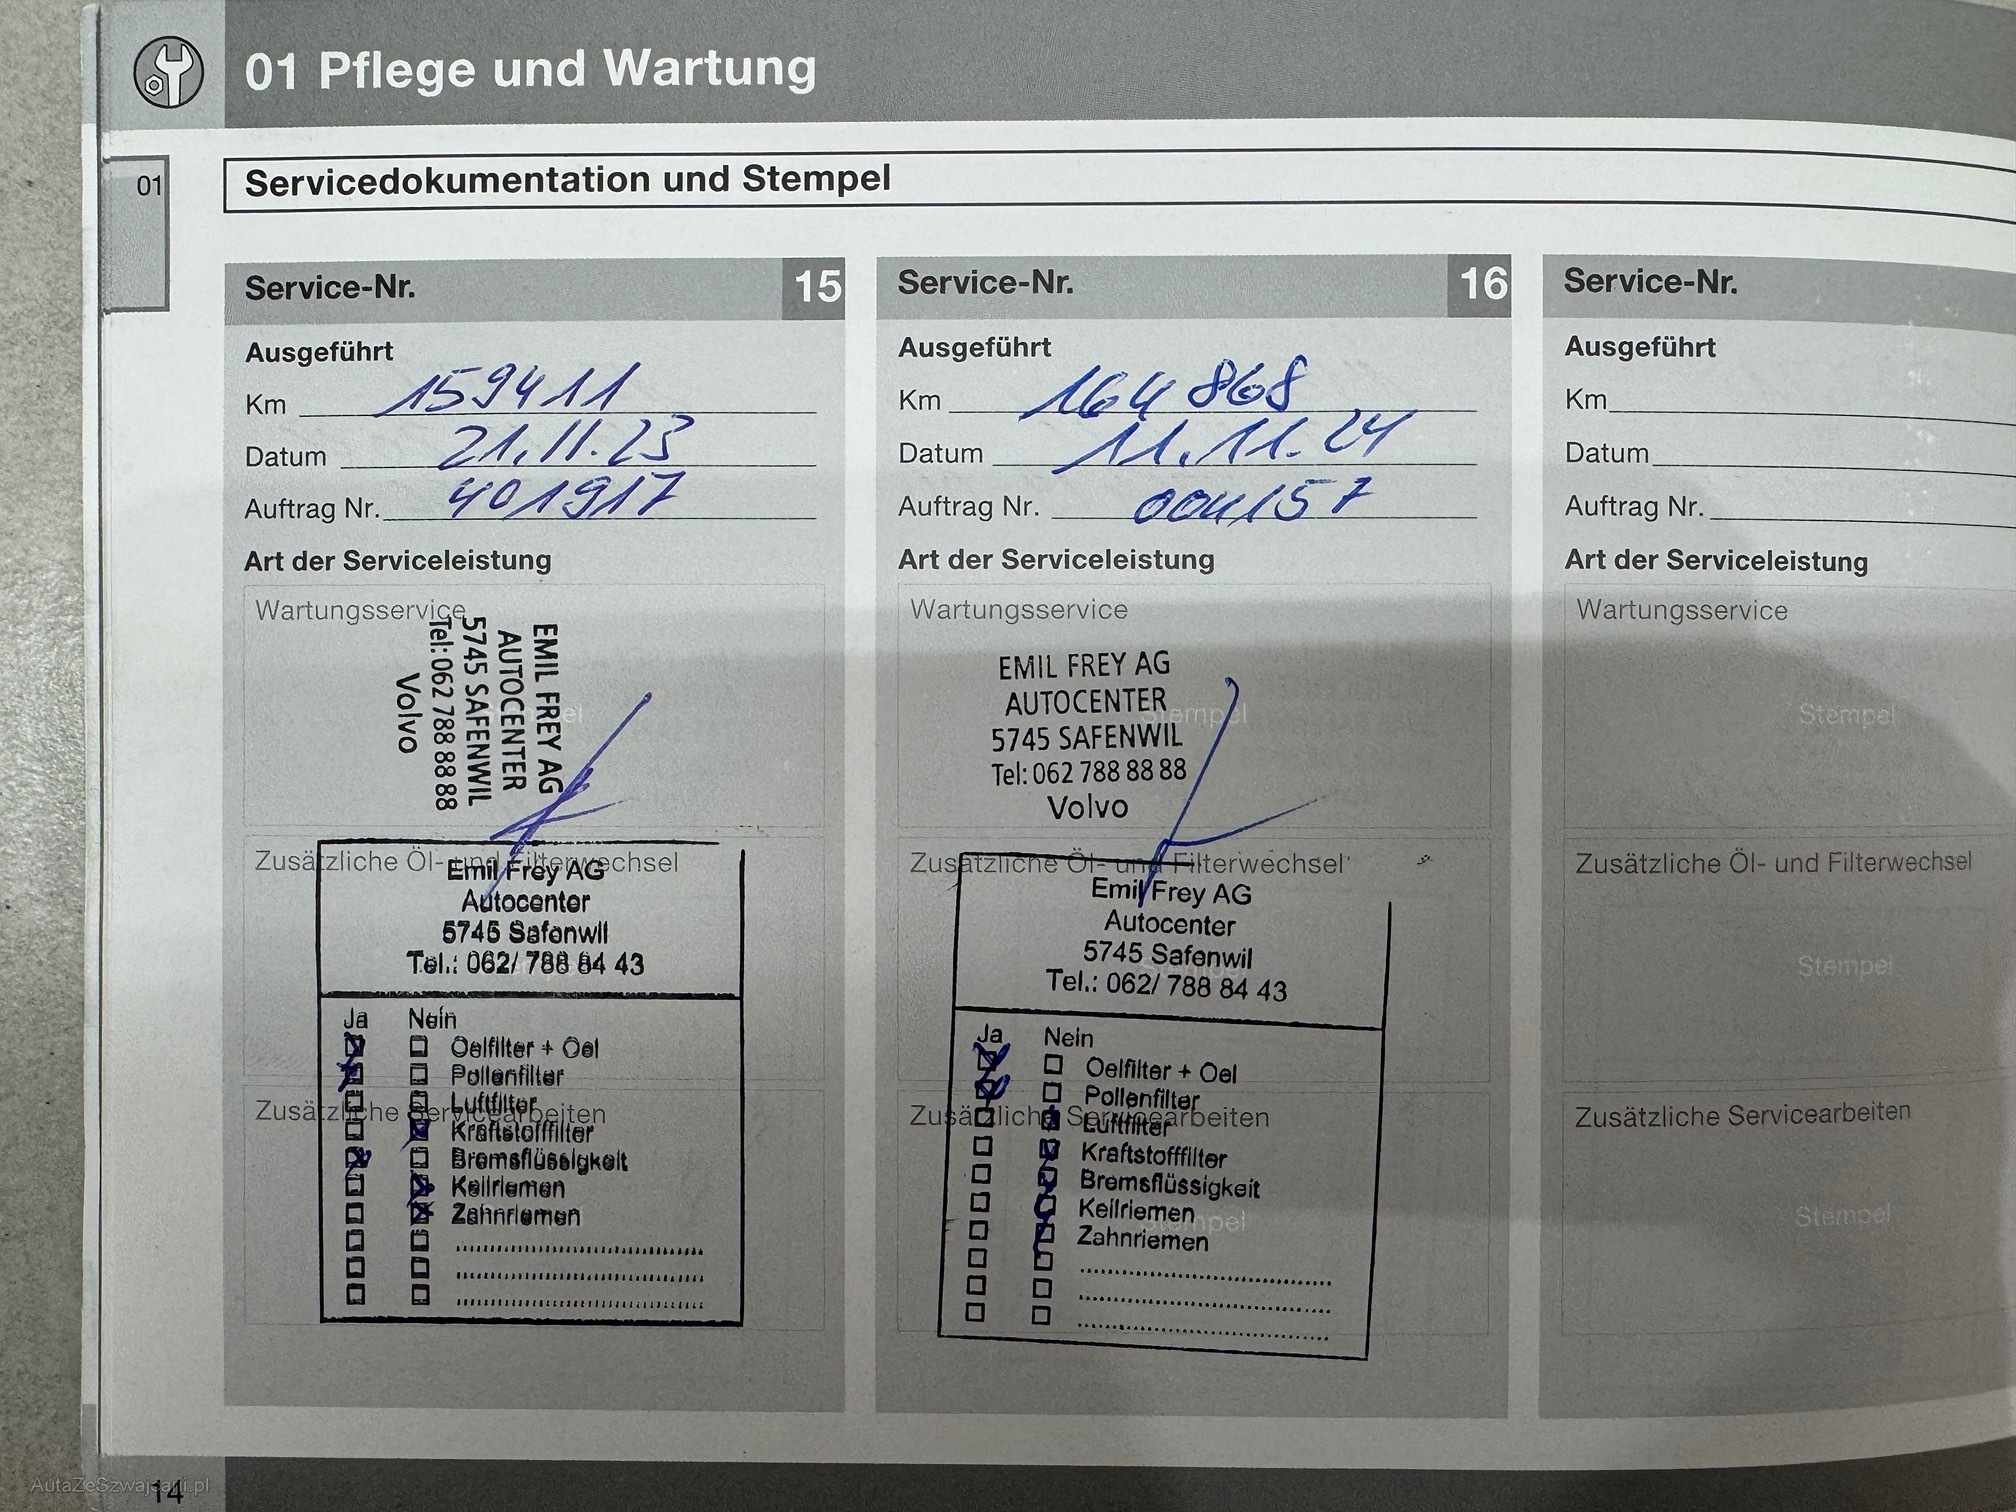 01 Pflege und Wartung
01
Servicedokumentation und Stempel
Service-Nr. 15
Ausgeführt
Km 159411
Datum 21.11.23
Auftrag Nr. 401917
Art der Serviceleistung
Wartungsservice
EMIL FREY AG
AUTOCENTER
5745 SAFENWIL
Tel: 062 788 88 88
Volvo
Zusätzliche Öl- und Filterwechsel
Emil Frey AG
Autocenter
5745 Safenwil
Tel.: 062/ 788 84 43
Ja Nein
Oelfilter + Oel
Pollenfilter
Luftfilter
Zusätzliche Servicearbeiten
Kraftstofffilter
Bremsflüssigkeit
Keilriemen
Zahnriemen
Service-Nr. 16
Ausgeführt
Km 164868
Datum 11.11.24
Auftrag Nr. 004157
Art der Serviceleistung
Wartungsservice
Stempel
EMIL FREY AG
AUTOCENTER
5745 SAFENWIL
Tel: 062 788 88 88
Volvo
Zusätzliche Öl- und Filterwechsel
Emil Frey AG
Autocenter
5745 Safenwil
Tel.: 062/ 788 84 43
Ja Nein
Oelfilter + Oel
Pollenfilter
Zusätzliche Servicearbeiten
Luftfilter
Kraftstofffilter
Bremsflüssigkeit
Keilriemen
Stempel
Zahnriemen
Service-Nr.
Ausgeführt
Km
Datum
Auftrag Nr.
Art der Serviceleistung
Wartungsservice
Stempel
Zusätzliche Öl- und Filterwechsel
Stempel
Zusätzliche Servicearbeiten
Stempel
14
AutaZeSzwajcarii.pl